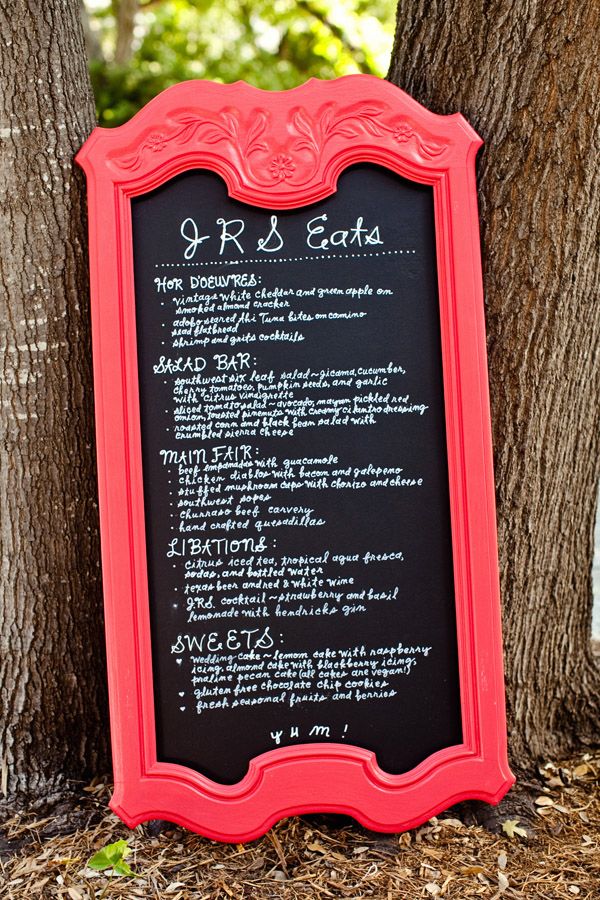 JRS Eats
HOR D'OEUVRES:
• vintage white cheddar and green apple on
smoked almond cracker
• adobo seared Ahi Tuna bites on comino
seed flatbread
• shrimp and grits cocktails
SALAD BAR:
• southwest six leaf salad ~ jicama, cucumber,
cherry tomatoes, pumpkin seeds, and garlic
with citrus vinaigrette
• sliced tomato salad ~ avocado, mayan pickled red
onion, toasted pinenuts with creamy cilantro dressing
• roasted corn and black bean salad with
crumbled sierra cheese
MAIN FAIR:
• beef empanadas with guacamole
• chicken diablos with bacon and galepeno
• stuffed mushroom caps with chorizo and cheese
• southwest sopes
• churraso beef carvery
• hand crafted quesadillas
LIBATIONS:
• citrus iced tea, tropical agua fresca,
sodas, and bottled water
• texas beer and red & white wine
• JRS cocktail ~ strawberry and basil
lemonade with hendricks gin
SWEETS:
♥ wedding cake ~ lemon cake with raspberry
icing, almond cake with blackberry icing,
praline pecan cake (all cakes are vegan!)
♥ gluten free chocolate chip cookies
♥ fresh seasonal fruits and berries
yum!